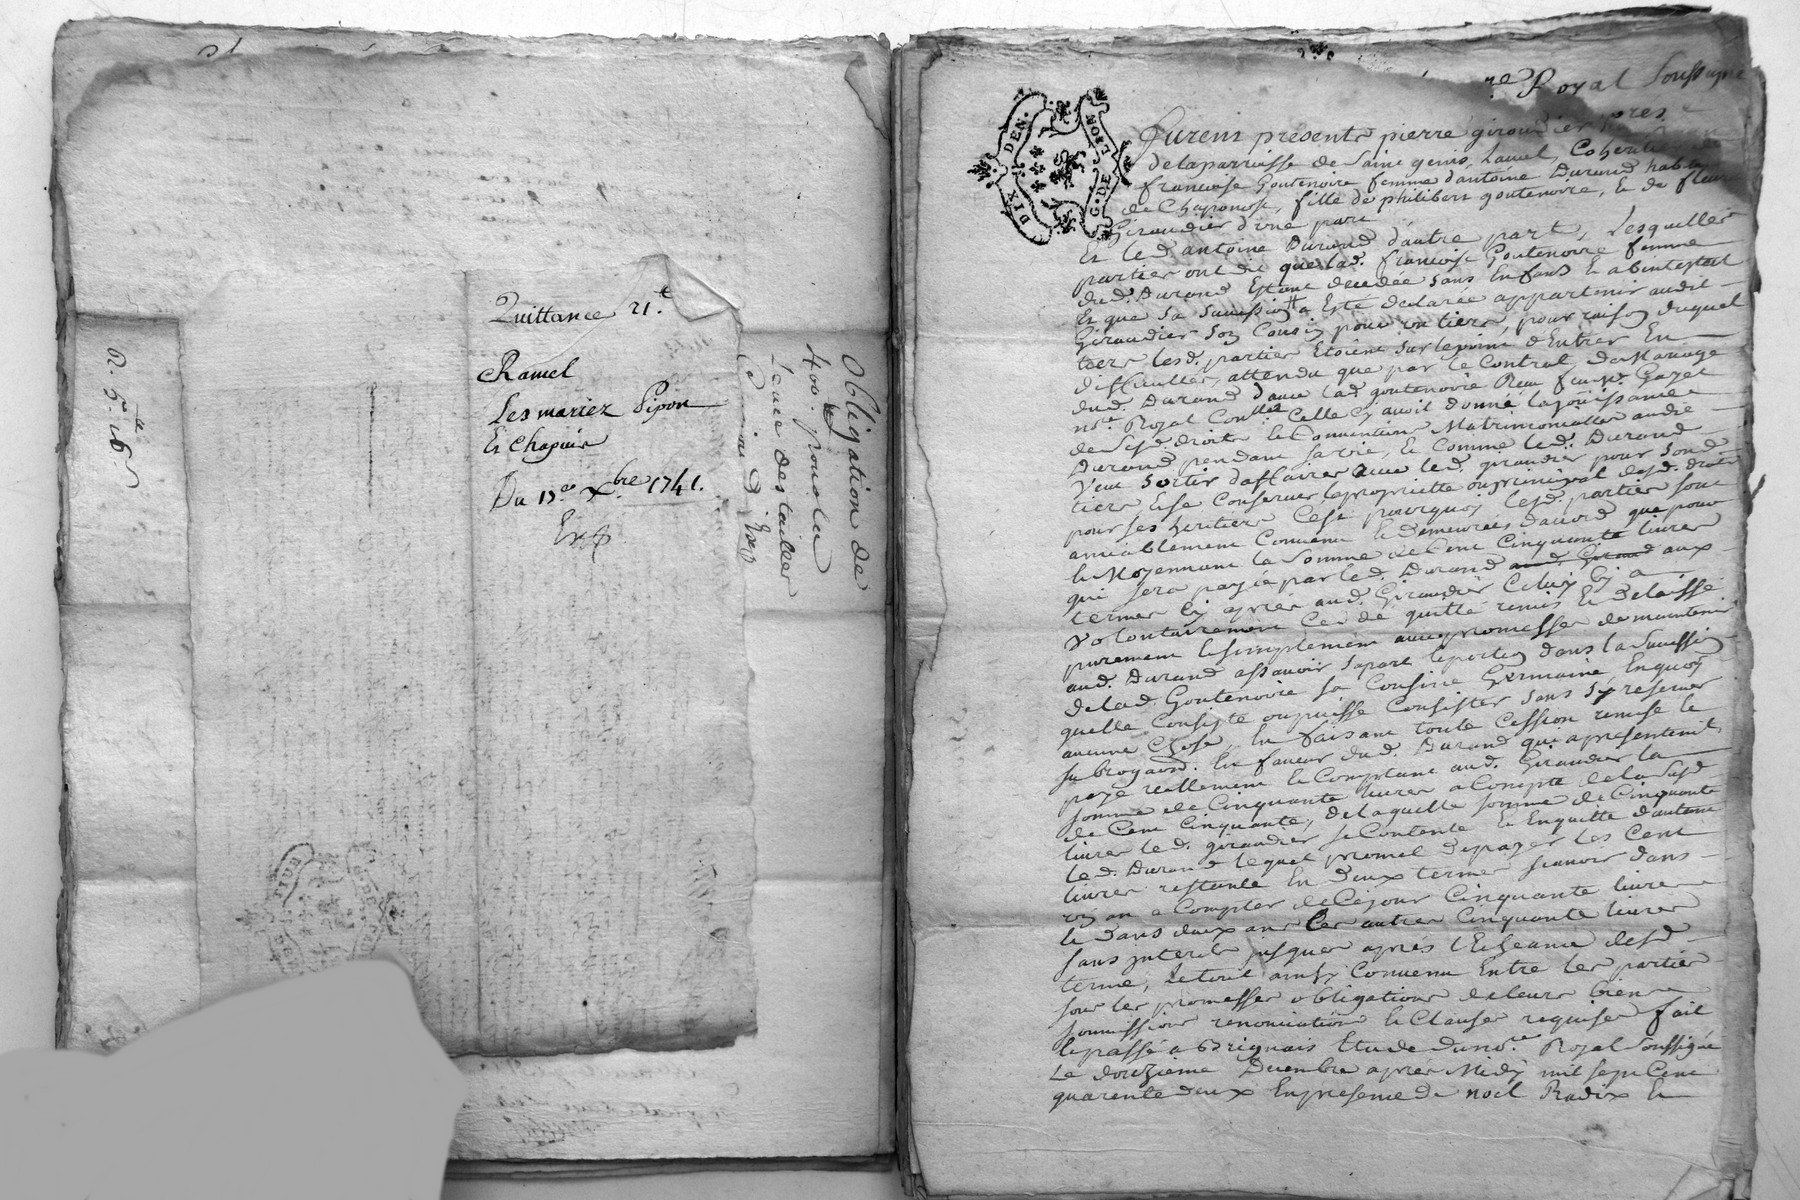 Quittance 21.tt
Ramel
Les mariez Pipon
Et Chapuis
Du 17.e Xbre 1741.
Exp
Obligation de
400.tt pour Leu
Leue des tailles
R. 5.ta 16.s
DIX DEN.
G. DE LION
re Royal soussigné
Furent presents pierre giraudier
de laparroisse de Saint genis Laual, Coheritier de
francoise Goutenoire femme d'antoine Durand habit
de Chaponost, fille de philibert goutenoire, Et de fleurie
Giraudier d'une part
Et led. antoine Durand d'autre part, Lesquelles
parties ont dit que lad. francoise Goutenoire femme
dud. Durand Estant decedée sans Enfans Et abintestat
Et que sa succession a Esté declarée appartenir audit
Giraudier son Cousin pour un tiers, pour raison duquel
tiers lesd. parties Etoient sur lepoint d'Entrer En
difficultés, attendu que par le Contrat de Mariage
dud. Durand auec lad goutenoire Reçu Gazel
nore. Royal Celle cy auoit donné lajouissance
de sesd droits Et Conuentions Matrimonialles audit
Durand pendant sa vie, Et Comme led. Durand
Veut sortir d'affaires auec led. giraudier pour sond
tiers, Et se Conseruer lapropriette ou principal desd. droits
pour ses heritiers C'est pourquoy lesd. parties sont
amiablement Conuenu Et demeurées dacord que pour
Et Moyennant la Somme de Cent Cinquante liures
qui sera payée par led. Durand aud. Giraud aux
termes Cy aprés aud. Giraudier Celuy Cy a
Volontairement Cedé quitté remis Et delaissé
purement Et simplement auec promesse de maintenir
aud. Durand assauoir sa part Et portion dans la Succession
de lad Goutenoire sa Cousine Germaine Enquoy
quelle Consiste ou puisse Consister sans s'y reseruer
aucune Chose En faisant toute Cession remise Et
subrogaon. En faueur dud. Durand qui a presentement
payé réellement Et Comptant aud. Giraudier la
somme de Cinquante liures a Compte de la susd
de Cent Cinquante, de laquelle somme de Cinquante
liures led. giraudier se Contente Et Enquitte d'autant
led. Durand lequel promet de payer les Cent
liures restante En deux termes scauoir dans
un an a Compter de Cejour Cinquante liures
Et dans deux ans les autres Cinquante liures
sans interets jusques aprés l'Echeance desd
terme, Le tout ainsy Conuenu Entre les parties
sous les promesses obligations de leurs biens
soumissions renonciations Et Clauses requises fait
Et passé a Brignais Etude du nore. Royal soussigné
Le douzieme Decembre aprés Midy mil sept Cent
quarente deux En presence de noel Radix Et